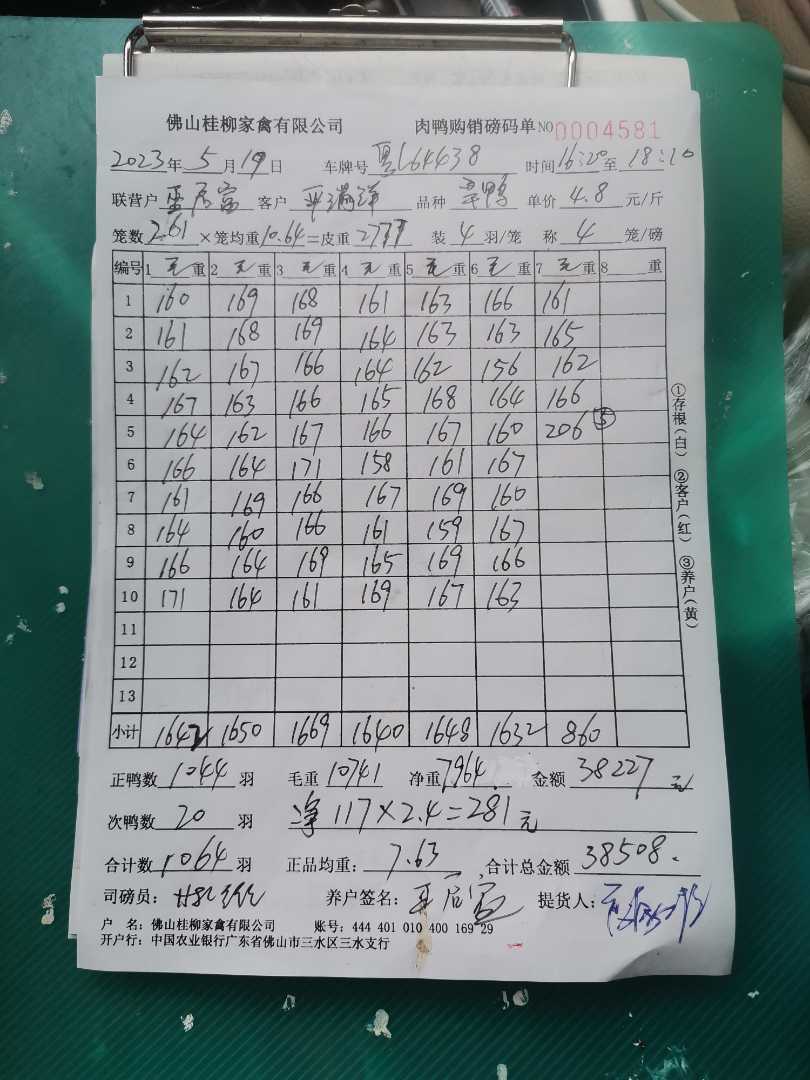 佛山桂柳家禽有限公司 肉鸭购销磅码单 NO 0004581
2023年 5月 19日 车牌号 粤L64438 时间 16:20 至 18:10
联营户 居富 客户 满洋 品种 鸭 单价 4.8 元/斤
笼数 261 × 笼均重 10.64 = 皮重 2777 装 4 羽/笼 称 4 笼/磅
编号 1 毛重 2 毛重 3 毛重 4 毛重 5 毛重 6 毛重 7 毛重 8 重
1 160 169 168 161 163 166 161
2 161 168 169 164 163 163 165
3 162 167 166 164 162 156 162
4 167 163 166 165 168 164 166
5 164 162 167 166 167 160 206 ⑤
6 166 164 171 158 161 167
7 161 169 166 167 169 160
8 164 160 166 161 159 167
9 166 164 169 165 169 166
10 171 164 161 169 167 163
11
12
13
小计 1642 1650 1669 1640 1648 1632 860
正鸭数 1044 羽 毛重 10741 净重 7964 金额 38227 元
次鸭数 20 羽 净 117×2.4=281元
合计数 1064 羽 正品均重: 7.63 合计总金额 38508.
司磅员: 养户签名: 居富 提货人:
户 名: 佛山桂柳家禽有限公司 账号: 444 401 010 400 169 29
开户行: 中国农业银行广东省佛山市三水区三水支行
①存根(白) ②客户(红) ③养户(黄)